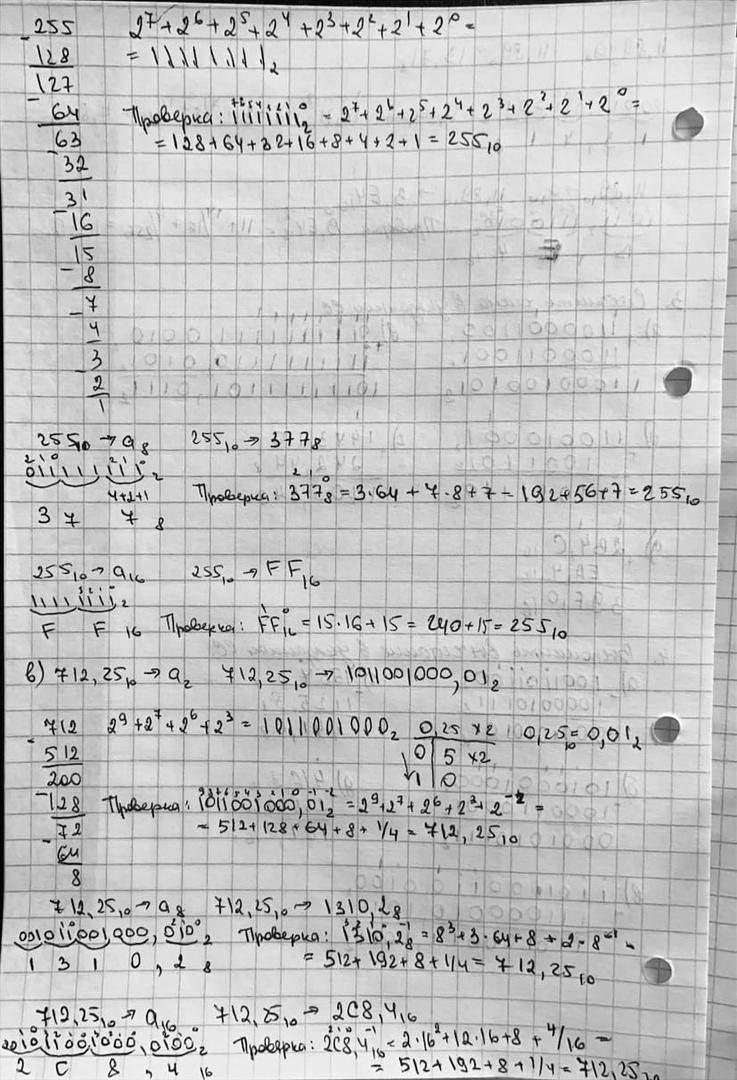 255
- 128
127
- 64
63
- 32
31
- 16
15
- 8
7
- 4
3
- 2
1
2⁷+2⁶+2⁵+2⁴+2³+2²+2¹+2⁰=
= 11111111₂
Проверка: 11111111₂ = 2⁷+2⁶+2⁵+2⁴+2³+2²+2¹+2⁰=
7 6 5 4 3 2 1 0
= 128+64+32+16+8+4+2+1 = 255₁₀
255₁₀ → a₈ 255₁₀ → 377₈
2 1 0 2 1 0
011111111₂
4+2+1
3 7 7 ₈
2 1 0
Проверка: 377₈ = 3·64 + 7·8+7 = 192+56+7 = 255₁₀
255₁₀ → a₁₆ 255₁₀ → FF₁₆
3 2 1 0
11111111₂
F F ₁₆
1 0
Проверка: FF₁₆ = 15·16+15 = 240+15 = 255₁₀
в) 712,25₁₀ → a₂ 712,25₁₀ → 1011001000,01₂
712
- 512
200
- 128
72
- 64
8
2⁹+2⁷+2⁶+2³ = 1011001000₂
0,25 ×2
0 5 ×2
1 0
0,25₁₀=0,01₂
9 8 7 6 5 4 3 2 1 0 -1 -2
Проверка: 1011001000,01₂ = 2⁹+2⁷+2⁶+2³+2⁻² =
= 512+128+64+8+1/4 = 712,25₁₀
712,25₁₀ → a₈ 712,25₁₀ → 1310,2₈
001011001000,010₂
1 3 1 0 , 2 ₈
3 2 1 0 -1
Проверка: 1310,2₈ = 8³+3·64+8+2·8⁻¹ =
= 512+192+8+1/4 = 712,25₁₀
712,25₁₀ → a₁₆ 712,25₁₀ → 2C8,4₁₆
001011001000,0100₂
2 C 8 , 4 ₁₆
2 1 0 -1
Проверка: 2C8,4₁₆ = 2·16²+12·16+8+4/16 =
= 512+192+8+1/4 = 712,25₁₀